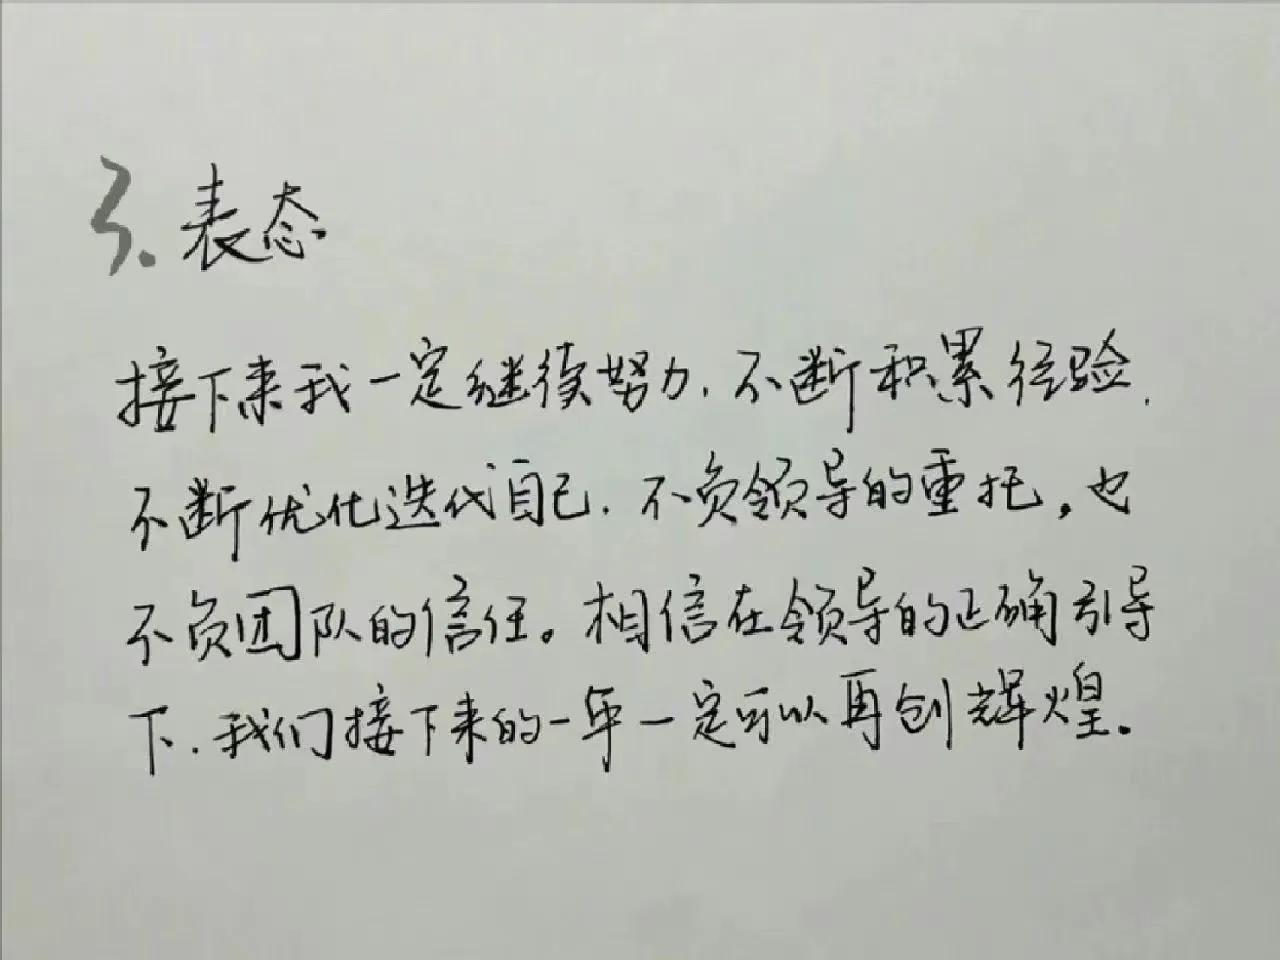 3. 表态
接下来我一定继续努力, 不断积累经验,
不断优化迭代自己, 不负领导的重托, 也
不负团队的信任。相信在领导的正确引导
下, 我们接下来的一年一定可以再创辉煌.